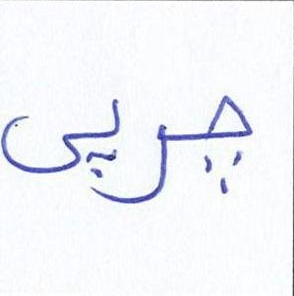 چربی